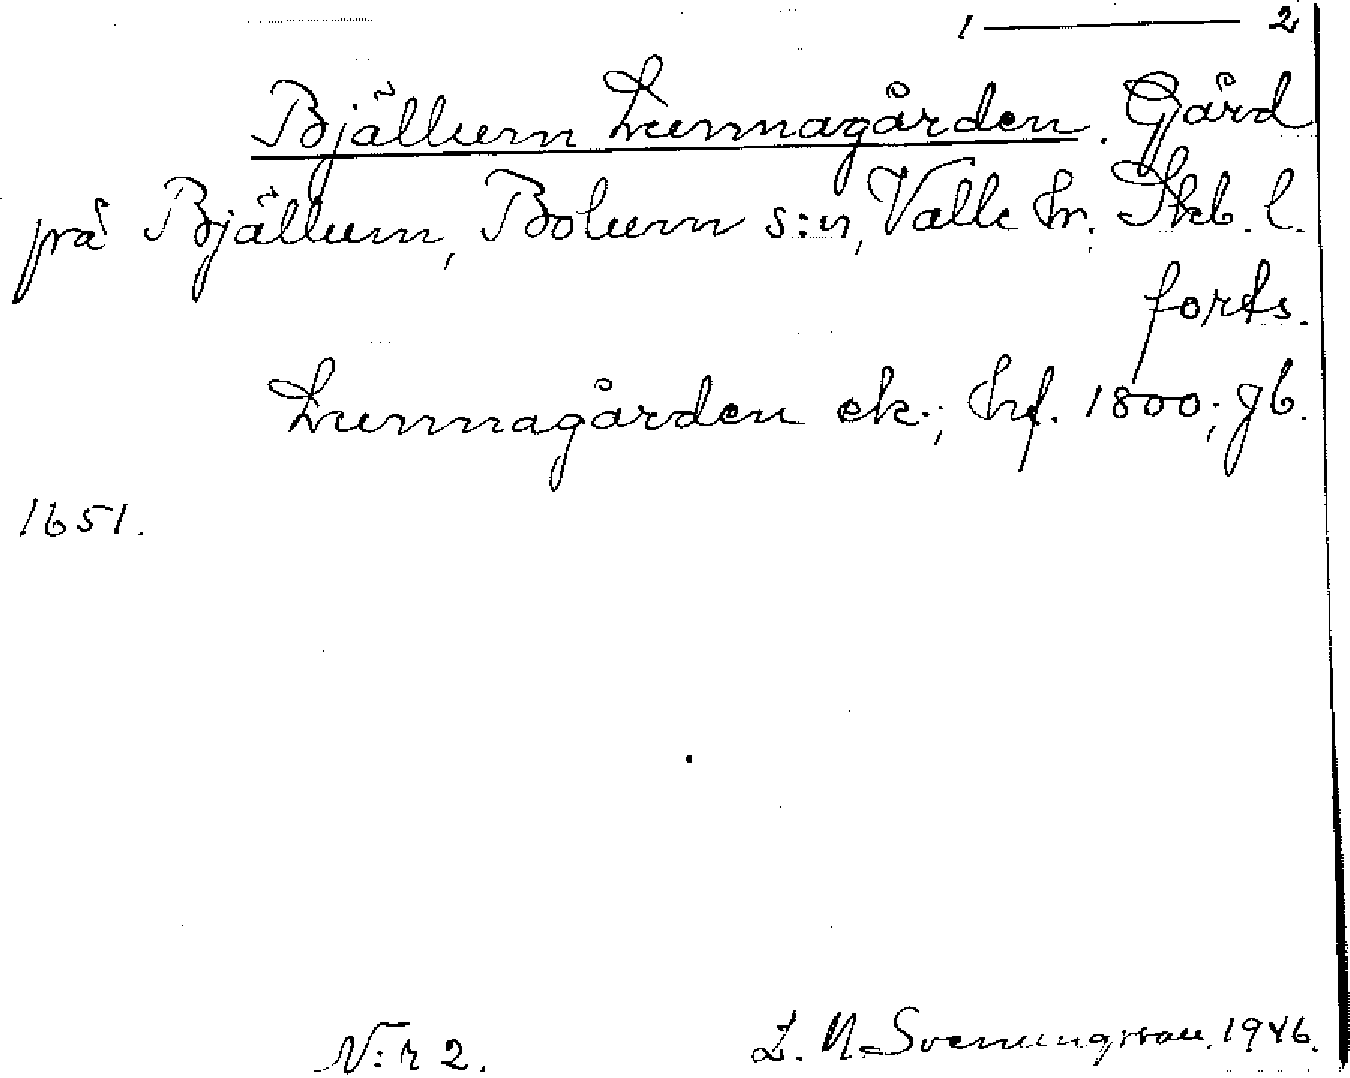 1 — 2
Bjällum Lunnagården. Gård
på Bjällum, Bolum s:n, Valle hr. Skb. l.
forts.
Lunnagården ek.; hf. 1800; gb.
1651.
N:r 2. L. N. Svenungsson. 1946.